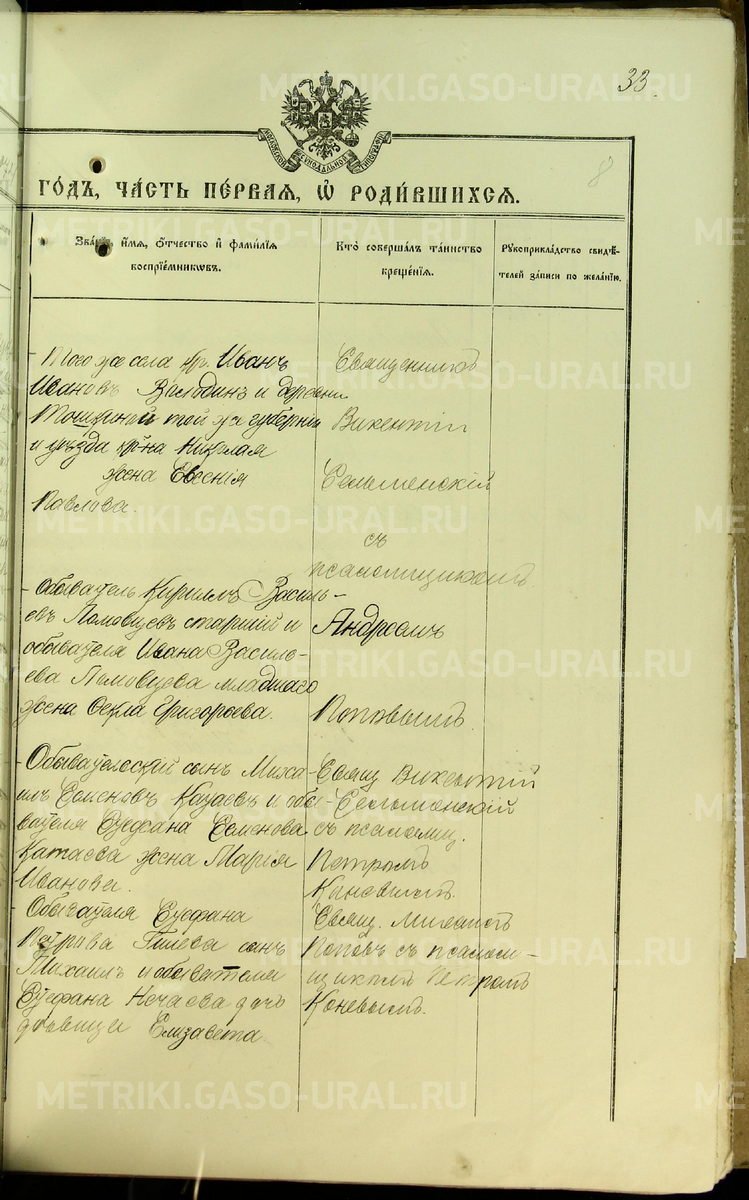 33.
8
МОСКОВСКОЙ СѴНОДАЛЬНОЙ ТИПОГРАФІИ
ГОДЪ, ЧАСТЬ ПЕРВАЯ, Ѡ РОДИВШИХСЯ.
Званіе, имя, отчество и фамилія воспріемниковъ.
Кто совершалъ таинство крещенія.
Рукоприкладство свидѣтелей записи по желанію.
Того же села кр. Иванъ
Ивановъ и деревни
той же губерніи
и уѣзда кр-на Николая
жена Евгенія
Павлова.
Священникъ
Викентій
Сельменскій
съ
псаломщикомъ
Андреемъ
Поповымъ
- Обыватель Кириллъ Василь-
евъ Ломовцевъ старшій и
обывателя Ивана Василь-
ева Ломовцева младшаго
жена Ѳекла Григорьева.
- Обывательскій сынъ Миха-
илъ Семеновъ Катаевъ и обы-
вателя Стефана Семенова
Катаева жена Марія
Иванова.
Свящ. Викентій
Сельменскій
съ псаломщ.
Петромъ
Коневымъ.
- Обывателя Стефана
Петрова Гилева сынъ
Михаилъ и обывателя
Стефана Нечаева дочь
дѣвица Елизавета
Свящ. Михаилъ
Поповъ съ псалом-
щикомъ Петромъ
Коневымъ.
METRIKI.GASO-URAL.RU